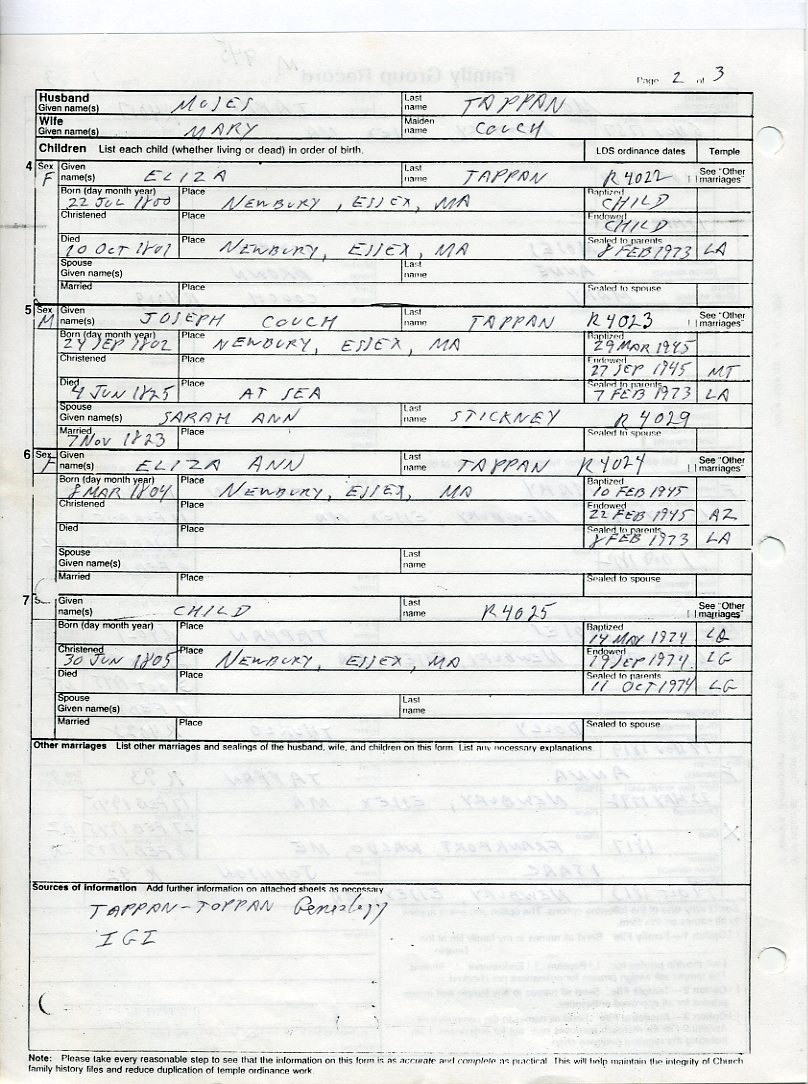 Page 2 of 3
Husband Given name(s) MOSES Last name TAPPAN
Wife Given name(s) MARY Maiden name COUCH
Children List each child (whether living or dead) in order of birth. LDS ordinance dates Temple
4 Sex F Given name(s) ELIZA Last name TAPPAN R4022 See "Other marriages"
Born (day month year) 22 JUL 1800 Place NEWBURY, ESSEX, MA Baptized CHILD
Christened Place Endowed CHILD
Died 10 OCT 1801 Place NEWBURY, ESSEX, MA Sealed to parents 8 FEB 1973 LA
Spouse Given name(s) Last name
Married Place Sealed to spouse
5 Sex M Given name(s) JOSEPH COUCH Last name TAPPAN R4023 See "Other marriages"
Born (day month year) 24 SEP 1802 Place NEWBURY, ESSEX, MA Baptized 29 MAR 1945
Christened Place Endowed 27 SEP 1945 MT
Died 4 JUN 1825 Place AT SEA Sealed to parents 7 FEB 1973 LA
Spouse Given name(s) SARAH ANN Last name STICKNEY R4029
Married 7 NOV 1823 Place Sealed to spouse
6 Sex F Given name(s) ELIZA ANN Last name TAPPAN R4024 See "Other marriages"
Born (day month year) 8 MAR 1804 Place NEWBURY, ESSEX, MA Baptized 10 FEB 1945
Christened Place Endowed 22 FEB 1945 AZ
Died Place Sealed to parents 8 FEB 1973 LA
Spouse Given name(s) Last name
Married Place Sealed to spouse
7 Given name(s) CHILD Last name R4025 See "Other marriages"
Born (day month year) Place Baptized 14 MAY 1974 LG
Christened 30 JUN 1805 Place NEWBURY, ESSEX, MA Endowed 19 SEP 1974 LG
Died Place Sealed to parents 11 OCT 1974 LG
Spouse Given name(s) Last name
Married Place Sealed to spouse
Other marriages List other marriages and sealings of the husband, wife, and children on this form. List any necessary explanations.
Sources of information Add further information on attached sheets as necessary
TAPPAN-TOPPAN Genealogy
IGI
Note: Please take every reasonable step to see that the information on this form is as accurate and complete as practical. This will help maintain the integrity of Church
family history files and reduce duplication of temple ordinance work.